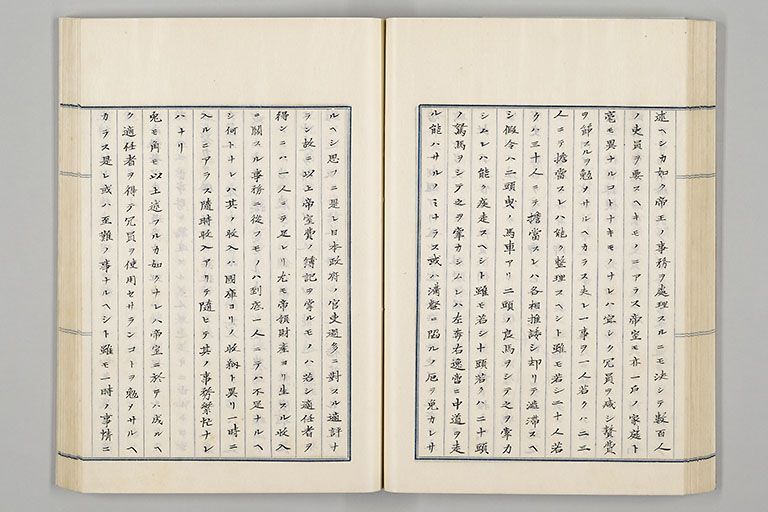 述ヘシカ如ク帝王ノ事務ヲ處理スルニモ决シテ数百人
ノ吏員ヲ要スヘキモノニアラス帝室モ亦一戸ノ家庭ト
毫モ異ナルコトナキモノナレハ宜シク冗員ヲ减シ贅費
ヲ節スルヲ勉メサルヘカラス夫レ一事ヲ一人若クハ二三
人ニテ擔當スレハ能ク整理スヘシト雖モ若シ二十人若
クハ三十人ニテ擔當スレハ各相推諉シ却リテ澁滞スヘ
シ假令ハ二頭曳ノ馬車アリ二頭ノ良馬ヲシテ之ヲ牽カ
シムレハ能ク疾走スヘシト雖モ若シ十頭若クハ二十頭
ノ駑馬ヲシテ之ヲ牽カシムレハ左奔右逸啻ニ中道ヲ走
ル能ハサルノミナラス或ハ溝壑ニ陷ルノ厄ヲ免カレサ
ルヘシ思フニ是レ日本政府ノ官吏過多ニ對スル適評ナ
ラン故ニ以上帝室費ノ簿記ヲ掌ルモノハ若シ適任者ヲ
得ンニハ一人ニテ足レリ尤モ帝領財産ヨリ生スル收入
ニ關スル事務ニ從フモノハ到底一人ニテハ不足ナルヘ
シ何トナレハ其ノ收入ハ國庫ヨリノ收納ト異リ一時ニ
入ルニアラス隨時收入アリテ隨ヒテ其ノ事務繁忙ナレ
ハナリ
兎モ角モ以上述フルカ如クナレハ帝室ニ於テハ成ルヘ
ク適任者ヲ得テ冗員ヲ使用セサランコトヲ勉メサルヘ
カラス是レ或ハ至難ノ事ナルヘシト雖モ一時ノ事情ニ